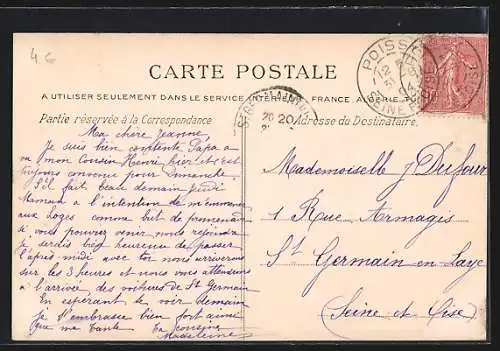 4 G
CARTE POSTALE
A UTILISER SEULEMENT DANS LE SERVICE INTÉRIEUR, FRANCE, ALGÉRIE
Partie réservée à la Correspondance
Adresse du Destinataire.
POISSY
12
SEINE
20
Ma chère Jeanne,
Je suis bien contente Papa a
vu mon Cousin Henri hier et c'est
toujours convenu pour Dimanche.
S'il fait beau demain jeudi
Maman a l'intention de m'emmener
aux Loges comme but de promenade
si vous pouvez venir nous rejoindre
je serais bien heureuse de passer
l'après midi avec toi nous arriverons
sur les 3 heures et nous vous attendrons
à l'arrivée des voitures de St Germain
En espérant te voir demain
je t'embrasse bien fort ainsi
que ma tante. Ta cousine
Madeleine
Mademoiselle J Dufour
1 Rue Armagis
St Germain en Laye
(Seine et Oise)